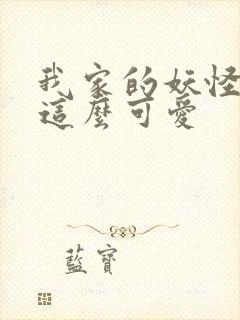 我家的妖怪
這麼可愛
藍寶